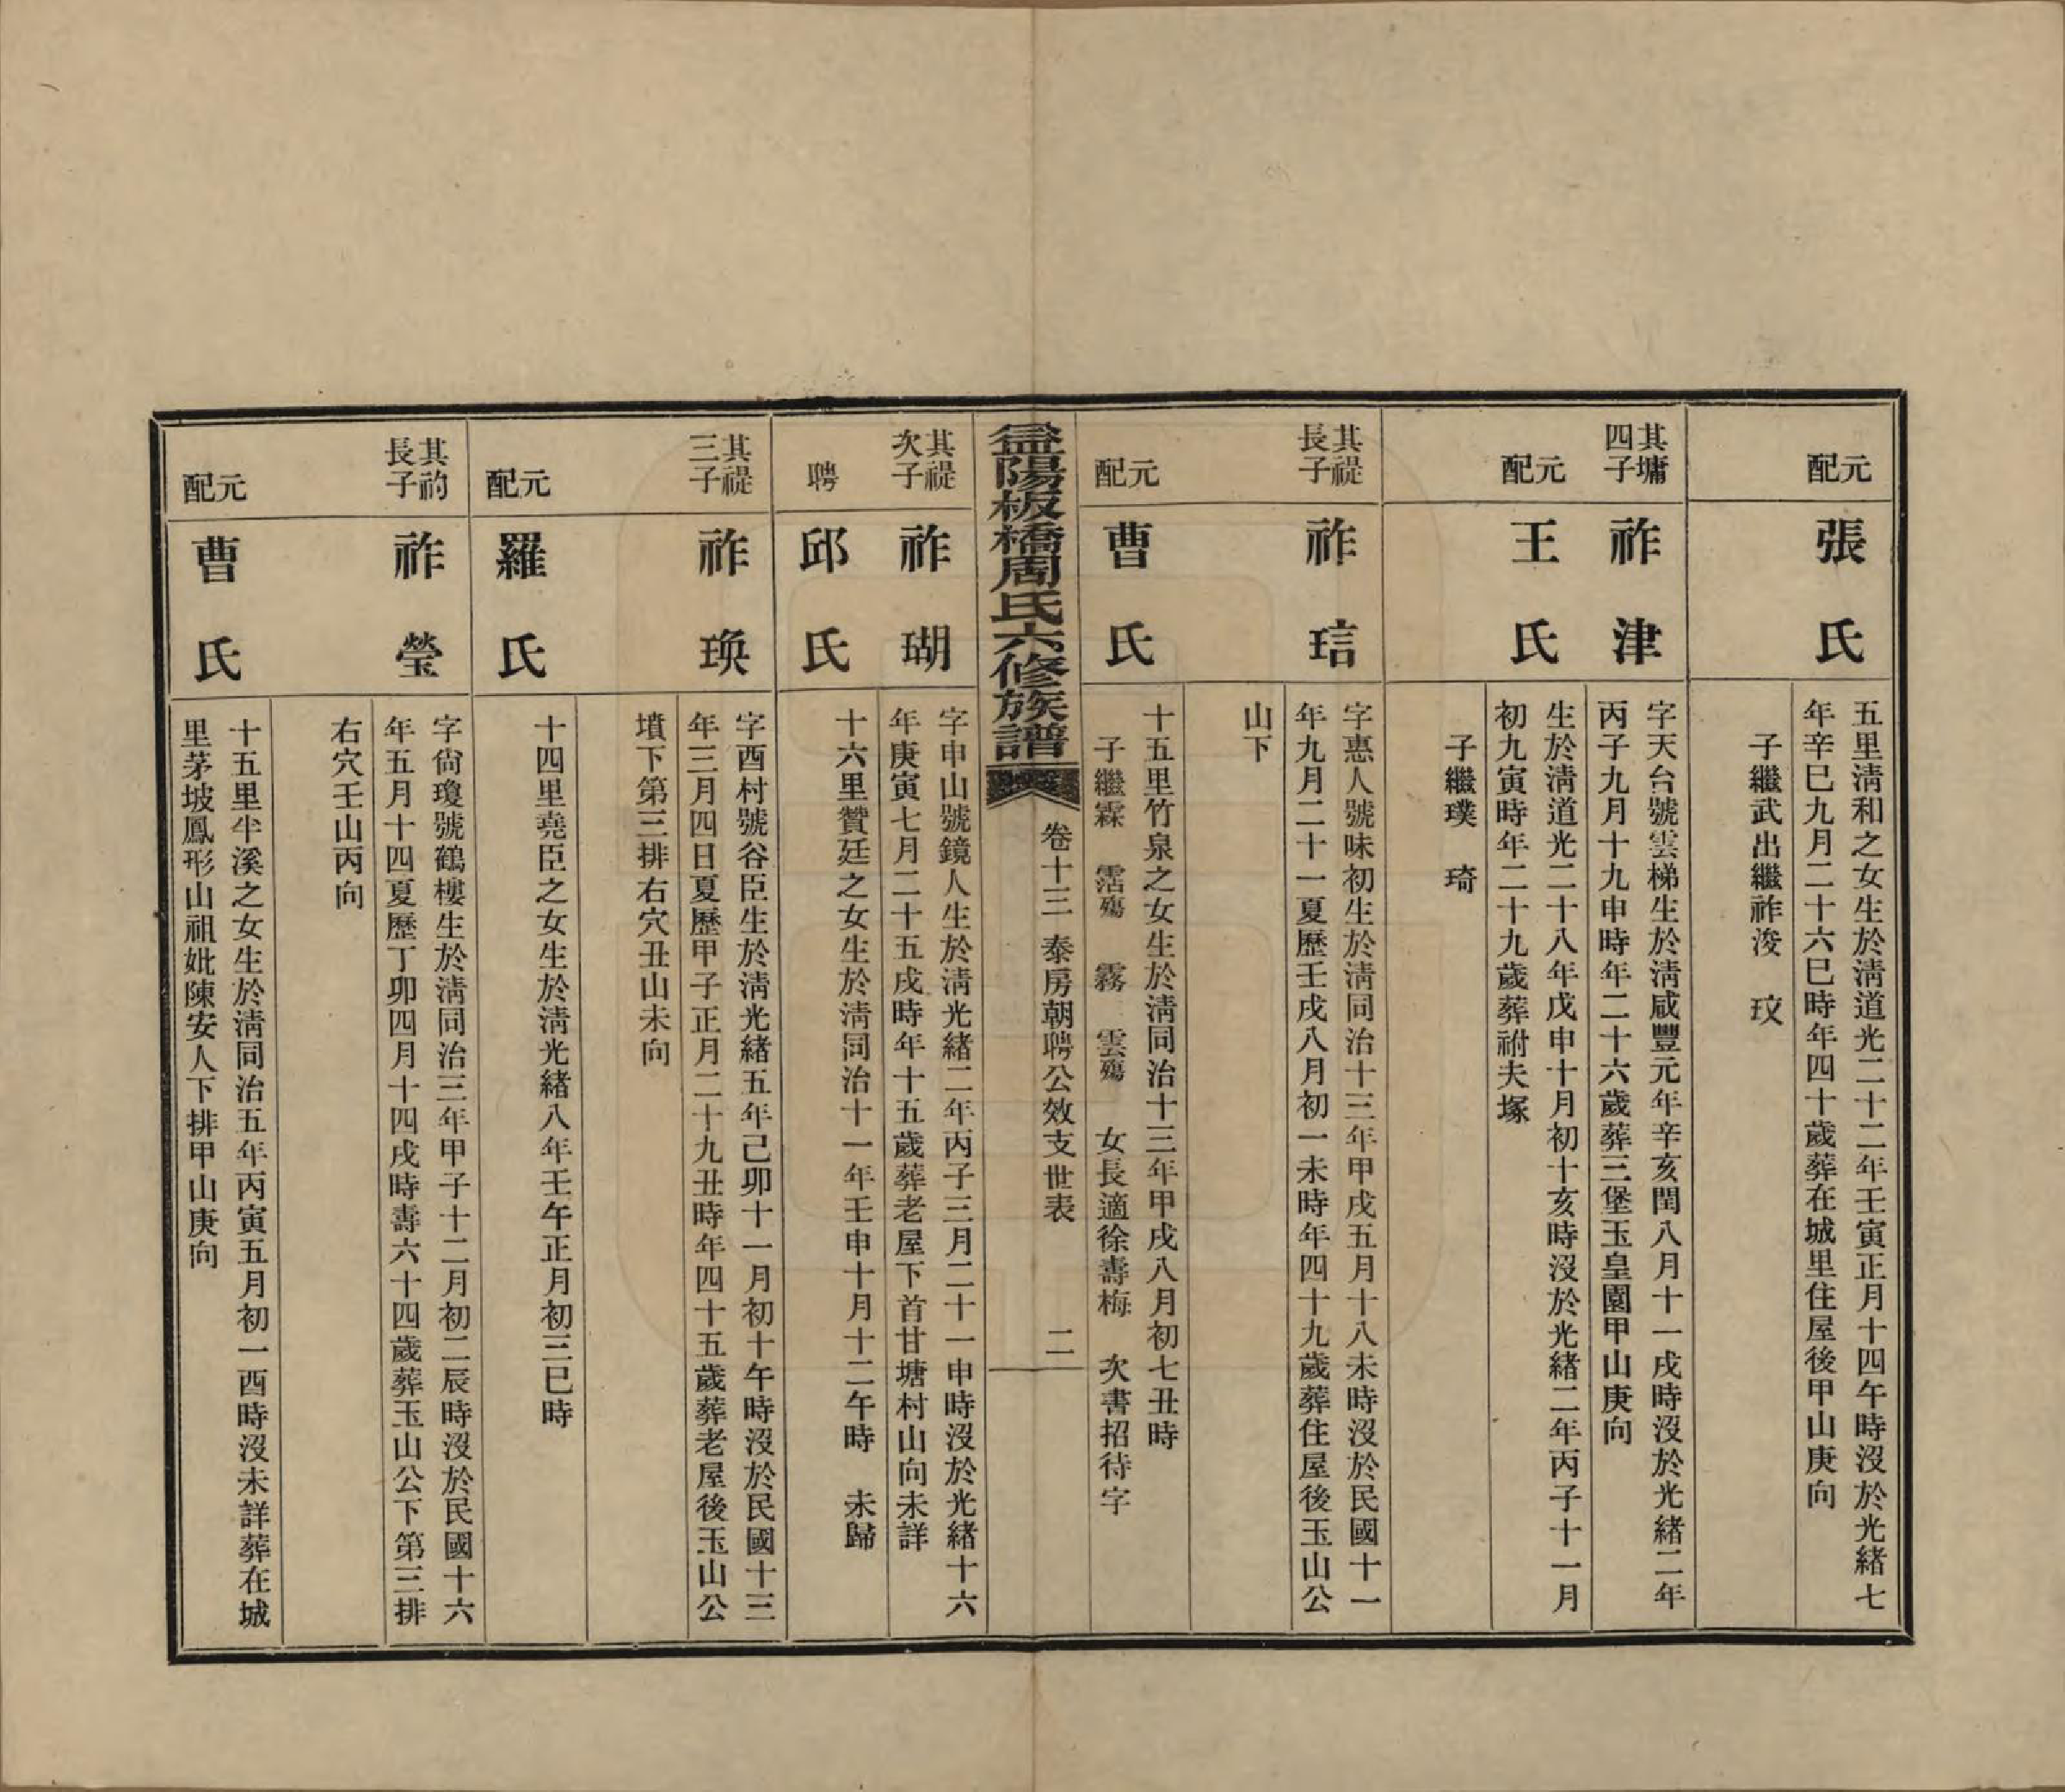 元配
張氏
五里淸和之女生於淸道光二十二年壬寅正月十四午時沒於光緒七
年辛巳九月二十六巳時年四十歲葬在城里住屋後甲山庚向
子繼武出繼祚浚 玟
其墉
四子
祚津
字天台號雲梯生於淸咸豐元年辛亥閏八月十一戌時沒於光緒二年
丙子九月十九申時年二十六歲葬三堡玉皇園甲山庚向
元配
王氏
生於淸道光二十八年戊申十月初十亥時沒於光緒二年丙子十一月
初九寅時年二十九歲葬祔夫塚
子繼璞 琦
其禔
長子
祚琂
字惠人號味初生於淸同治十三年甲戌五月十八未時沒於民國十一
年九月二十一夏歷壬戌八月初一未時年四十九歲葬住屋後玉山公
山下
元配
曹氏
十五里竹泉之女生於淸同治十三年甲戌八月初七丑時
子繼霖 霑殤 霧 雲殤 女長適徐壽梅 次書招待字
益陽板橋周氏六修族譜
卷十三 泰房朝聘公效支世表
二
其禔
次子
祚瑚
字申山號鏡人生於淸光緒二年丙子三月二十一申時沒於光緒十六
年庚寅七月二十五戌時年十五歲葬老屋下首甘塘村山向未詳
聘
邱氏
十六里贊廷之女生於淸同治十一年壬申十月十二午時 未歸
其禔
三子
祚瑍
字酉村號谷臣生於淸光緒五年己卯十一月初十午時沒於民國十三
年三月四日夏歷甲子正月二十九丑時年四十五歲葬老屋後玉山公
墳下第三排右穴丑山未向
元配
羅氏
十四里堯臣之女生於淸光緒八年壬午正月初三巳時
其礿
長子
祚瑩
字尙瓊號鶴樓生於淸同治三年甲子十二月初二辰時沒於民國十六
年五月十四夏歷丁卯四月十四戌時壽六十四歲葬玉山公下第三排
右穴壬山丙向
元配
曹氏
十五里半溪之女生於淸同治五年丙寅五月初一酉時沒未詳葬在城
里茅坡鳳形山祖妣陳安人下排甲山庚向